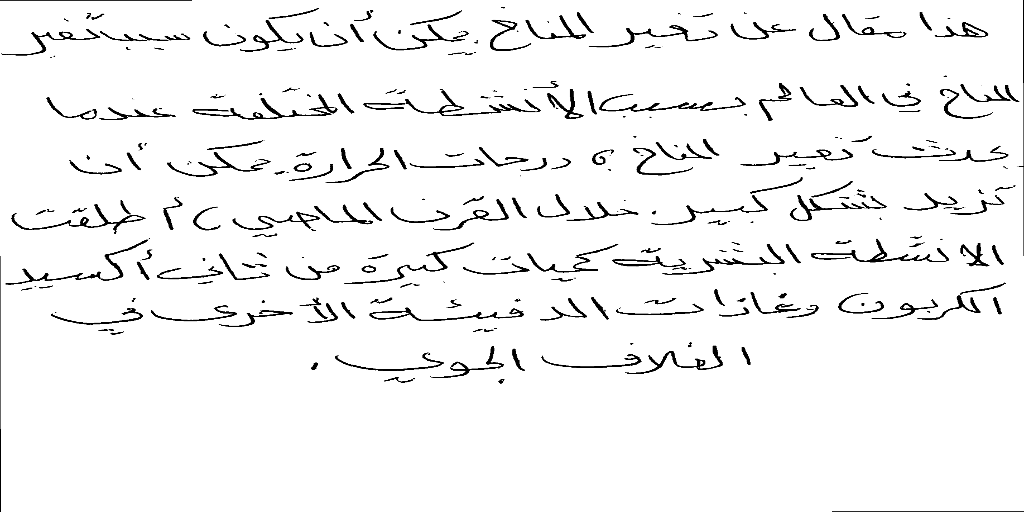 هذا مقال عن تغير المناخ. يمكن أن يكون سبب تغير
المناخ في العالم بسبب الأنشطة المختلفة عندما
يحدث تغير المناخ ، درجات الحرارة يمكن أن
تزيد بشكل كبير. خلال القرن الماضي ، أطلقت
الانشطة البشرية كميات كبيرة من ثاني أكسيد
الكربون وغازات الدفيئة الأخرى في
الغلاف الجوي .